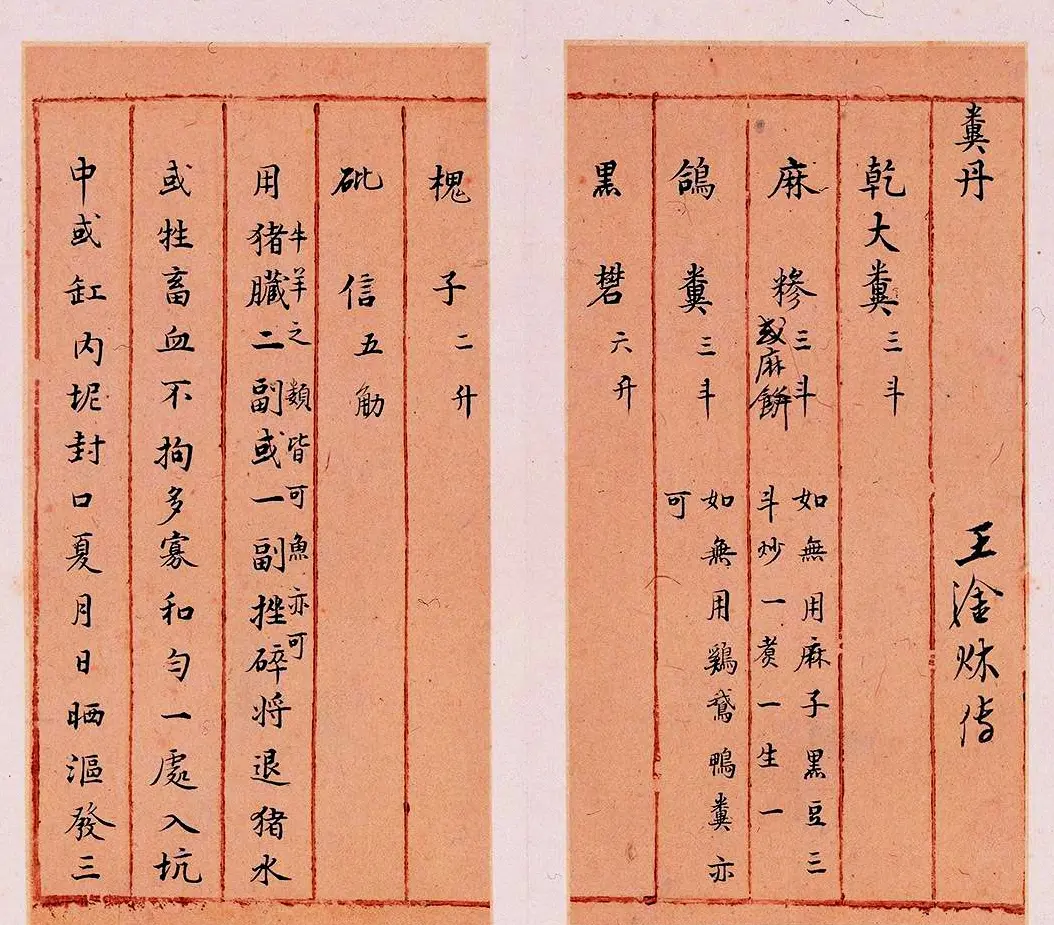 糞丹
王淦秌传
乾大糞三斗
麻糁三斗
或麻餅
如無用麻子黒豆三
斗炒一煑一生一
鴿糞三斗
如無用鷄鵞鴨糞亦
可
黒礬六升
槐子二升
砒信五觔
牛羊之類皆可魚亦可
用猪臟二副或一副挫碎将退猪水
或牲畜血不拘多寡和匀一處入坑
中或缸内坭封口夏月日晒漚發三